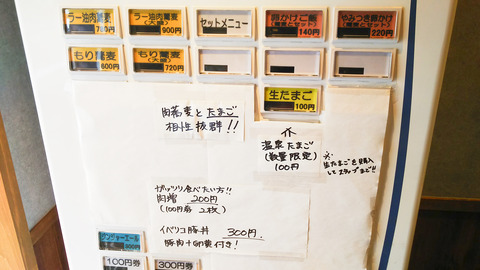 ラー油肉蕎麦
780円
ラー油肉蕎麦
(大盛)
900円
セットメニュー
卵かけご飯
140円
やみつき豚かけ
220円
もり蕎麦
600円
もり蕎麦
(大盛)
720円
生たまご
100円
肉蕎麦とたまご
相性抜群!!
温泉たまご
(数量限定)
100円
生たまごを購入
してスタッフまで!!
ガッツリ食べたい方!!
肉増 200円
(100円券 2枚)
イベリコ豚丼 300円
豚肉+卵黄付き!
ジンジャーエール
100円券
300円券